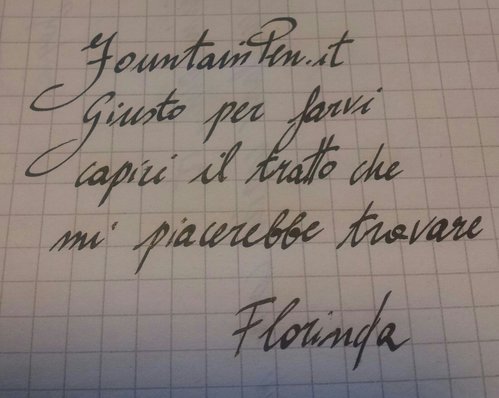 FountainPen.it
Giusto per farvi
capiri il tratto che
mi piacerebbe trovare
Florinda